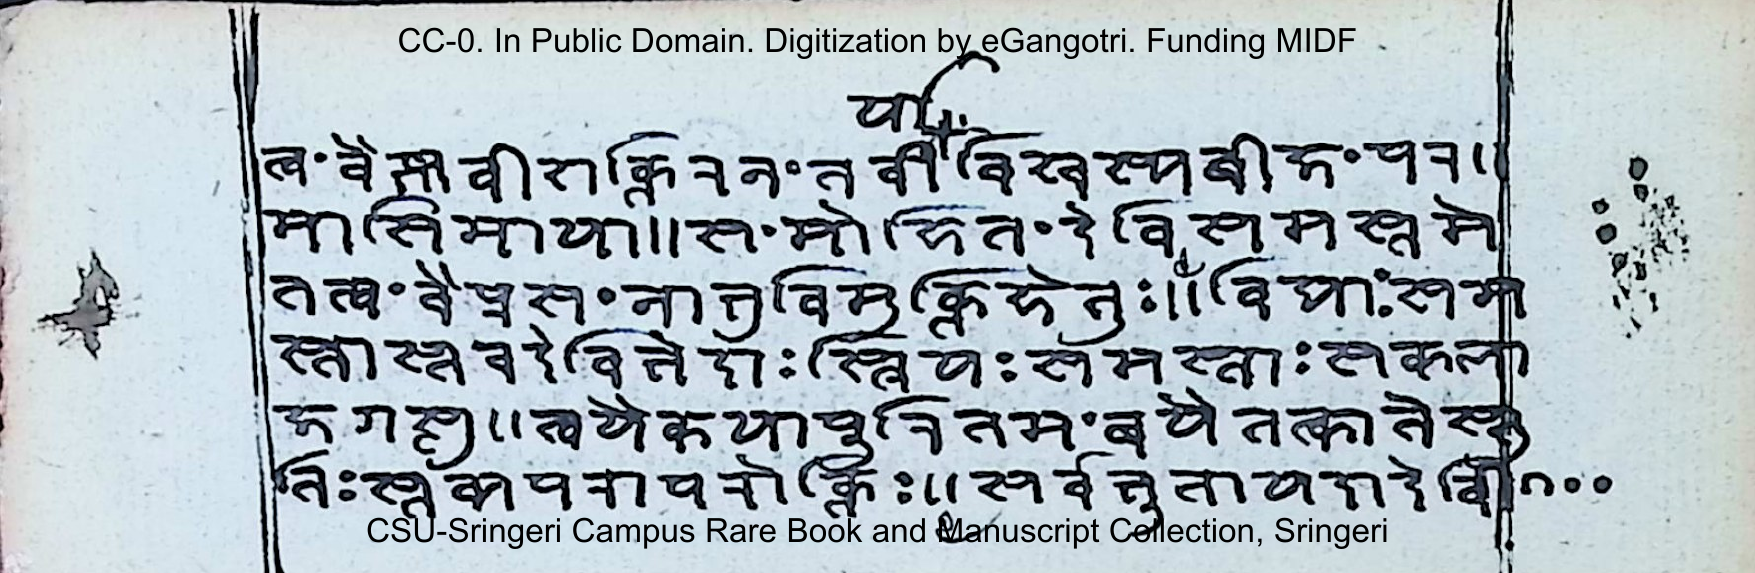 CC-0. In Public Domain. Digitization by eGangotri. Funding MIDF
र्या
त्वं वैस्मवीशक्तिरनंतवीविस्वस्यबीजंपर॥
मासिमाया॥संमोहितंदेविसमस्तमे
तत्वंवैप्रसंनातुविमुक्तिहेतुः॥विद्याःसम
स्तास्तवदेवितेदाःस्त्रियःसमस्ताःसकला
जगत्सु॥त्वयेकयापुरितमंबयेतत्कातेस्तु
तिःस्तव्यापरापरोक्तिः॥सर्वतुतायदादेवी
CSU-Sringeri Campus Rare Book and Manuscript Collection, Sringeri